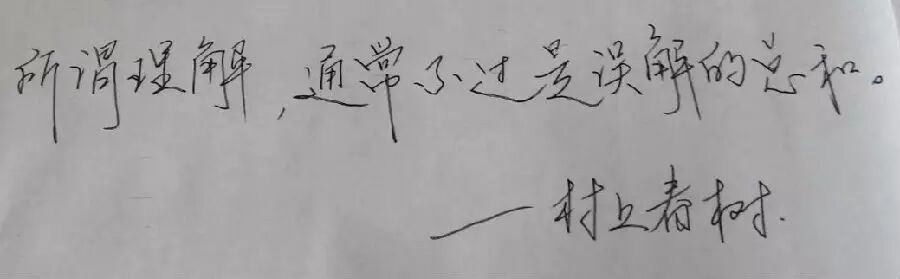 所谓理解,通常不过是误解的总和。
—村上春树.